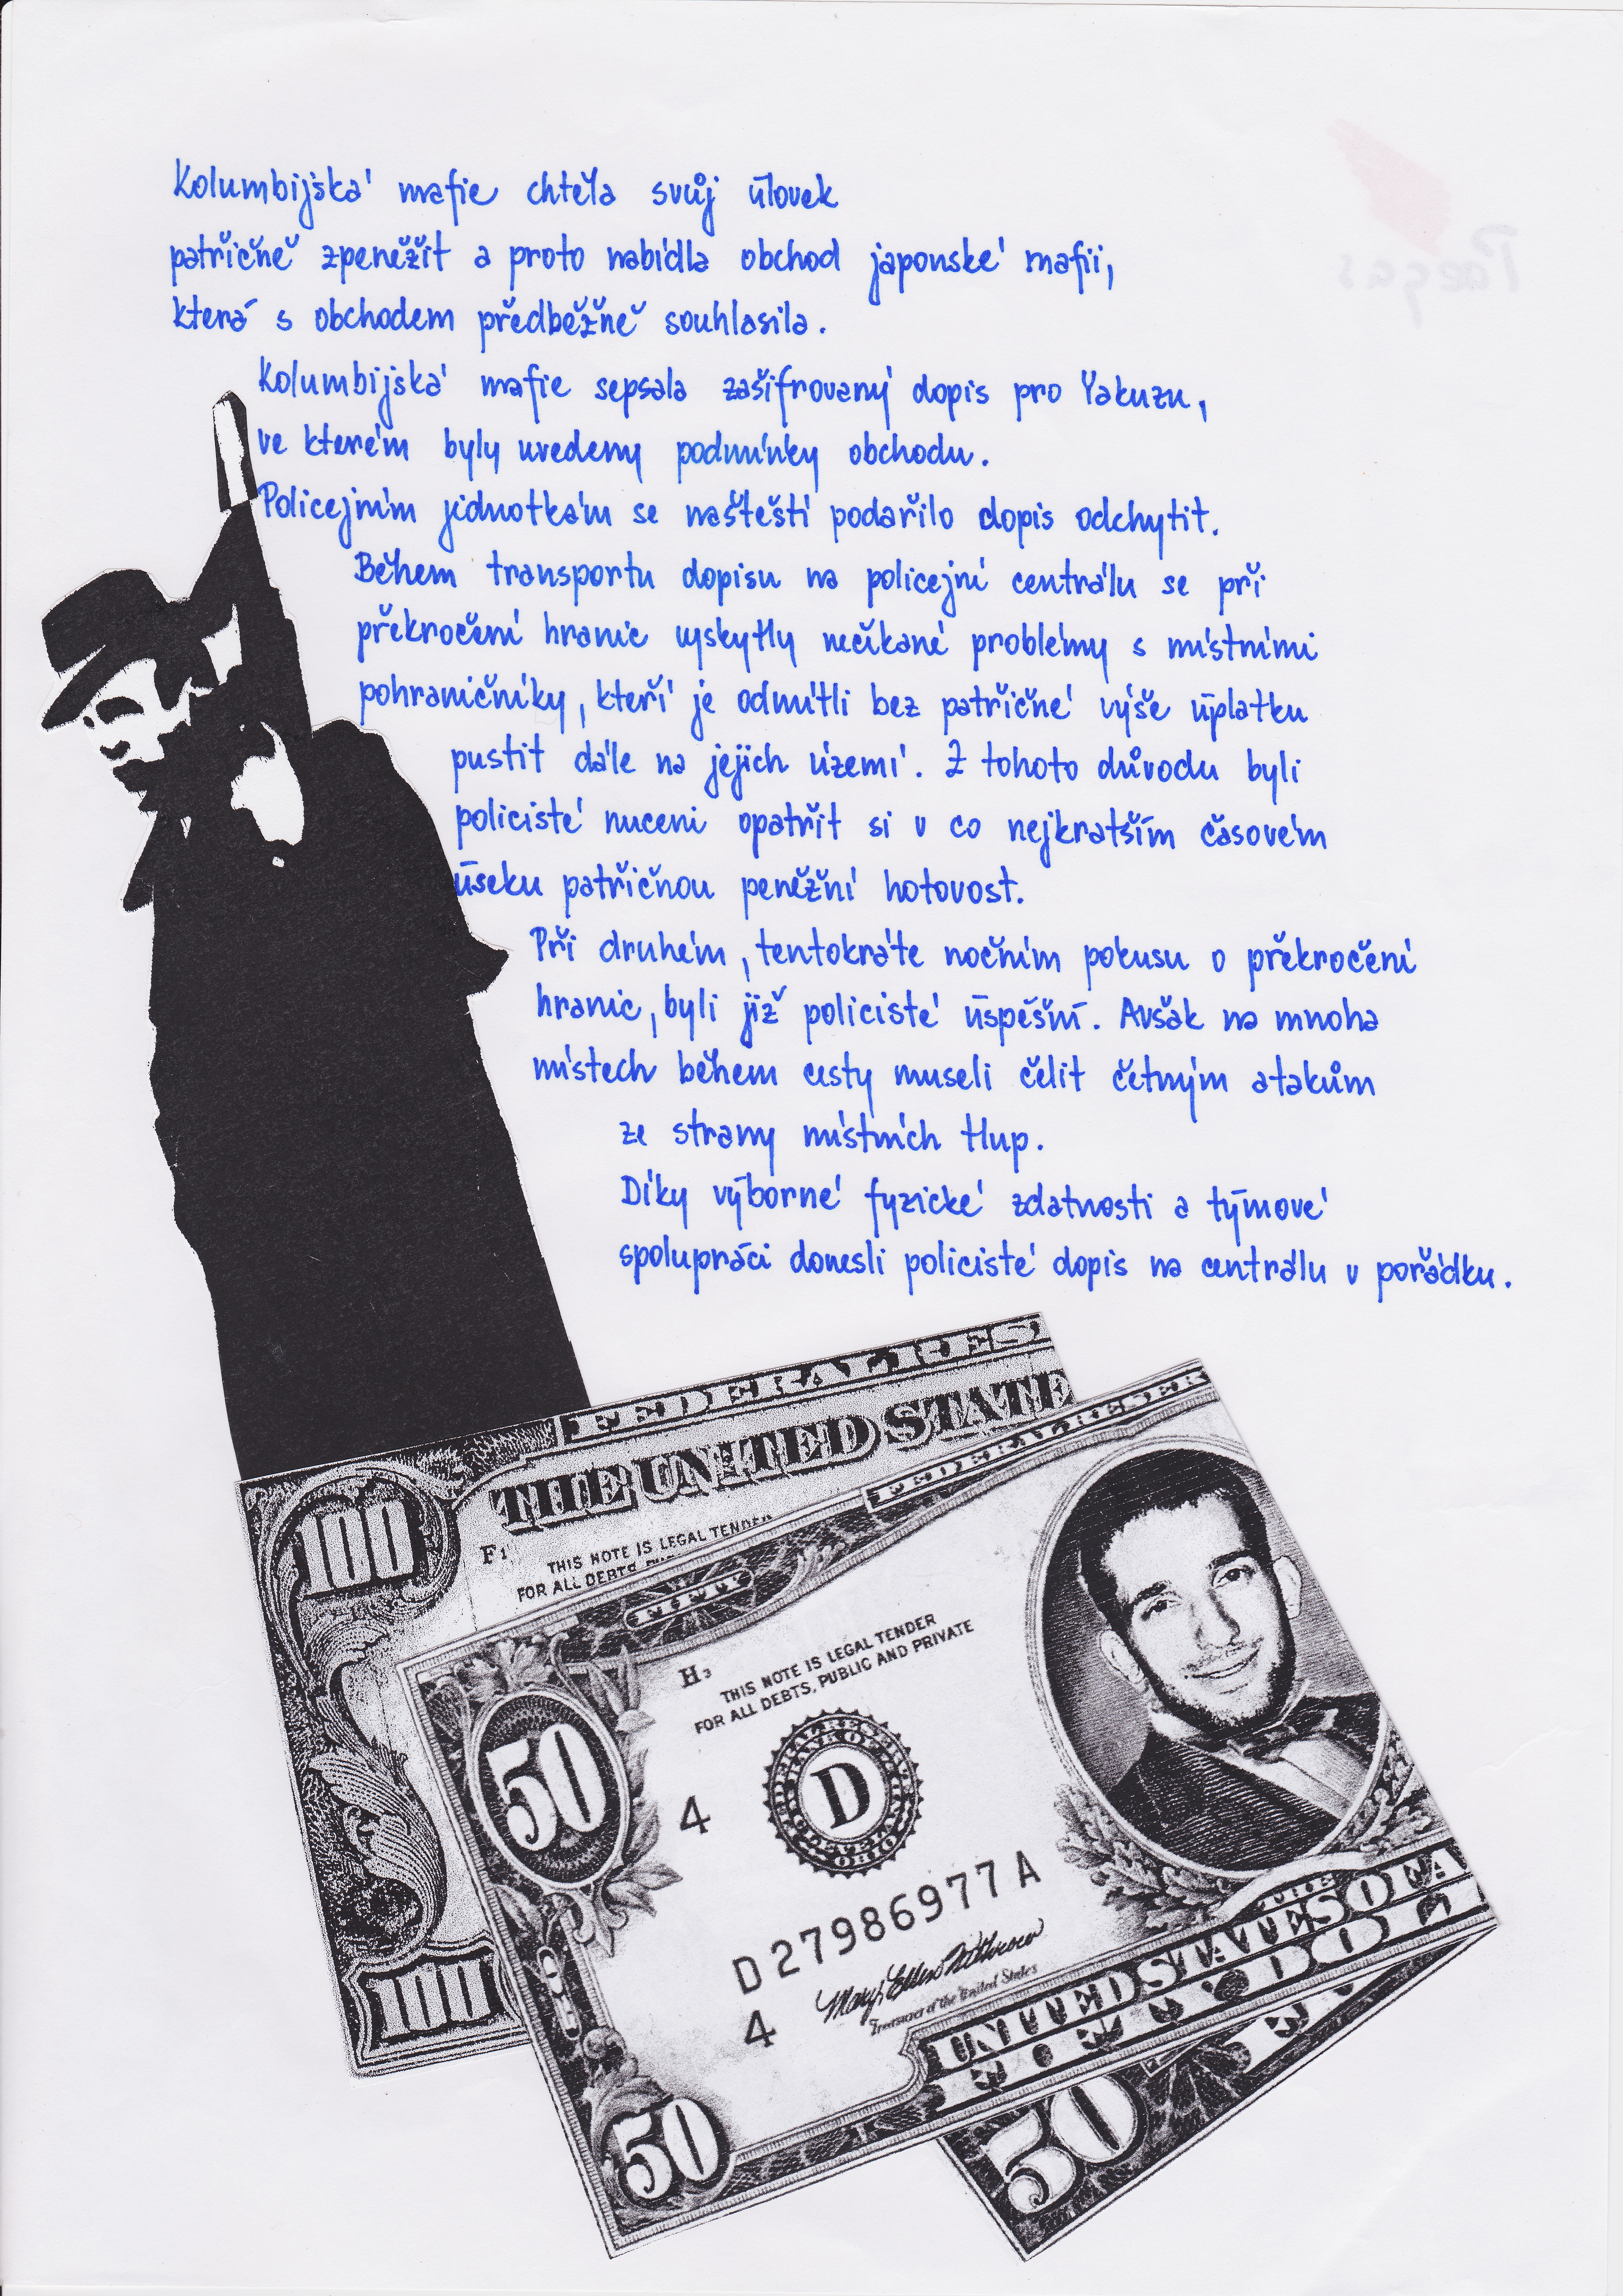 Kolumbijská mafie chtěla svůj úlovek
patřičně zpeněžit a proto nabídla obchod japonské mafii,
která s obchodem předběžně souhlasila.
Kolumbijská mafie sepsala zašifrovaný dopis pro Yakuzu,
ve kterém byly uvedeny podmínky obchodu.
Policejním jednotkám se naštěstí podařilo dopis odchytit.
Během transportu dopisu na policejní centrálu se při
překročení hranic vyskytly nečekané problémy s místními
pohraničníky, kteří je odmítli bez patřičné výše úplatku
pustit dále na jejich území. Z tohoto důvodu byli
policisté nuceni opatřit si v co nejkratším časovém
úseku patřičnou peněžní hotovost.
Při druhém, tentokráte nočním pokusu o překročení
hranic, byli již policisté úspěšní. Avšak na mnoha
místech během cesty museli čelit četným atakům
ze strany místních tlup.
Díky výborné fyzické zdatnosti a týmové
spolupráci donesli policisté dopis na centrálu v pořádku.
FEDERAL RES
THE UNITED STATE
100
F
THIS NOTE IS LEGAL TENDER
FOR ALL DEBTS
FEDERAL RESER
H3
THIS NOTE IS LEGAL TENDER
FOR ALL DEBTS, PUBLIC AND PRIVATE
50
4
D
D27986977A
4
Treasurer of the United States
UNITED STATES OF A
100
50
50
Paegas